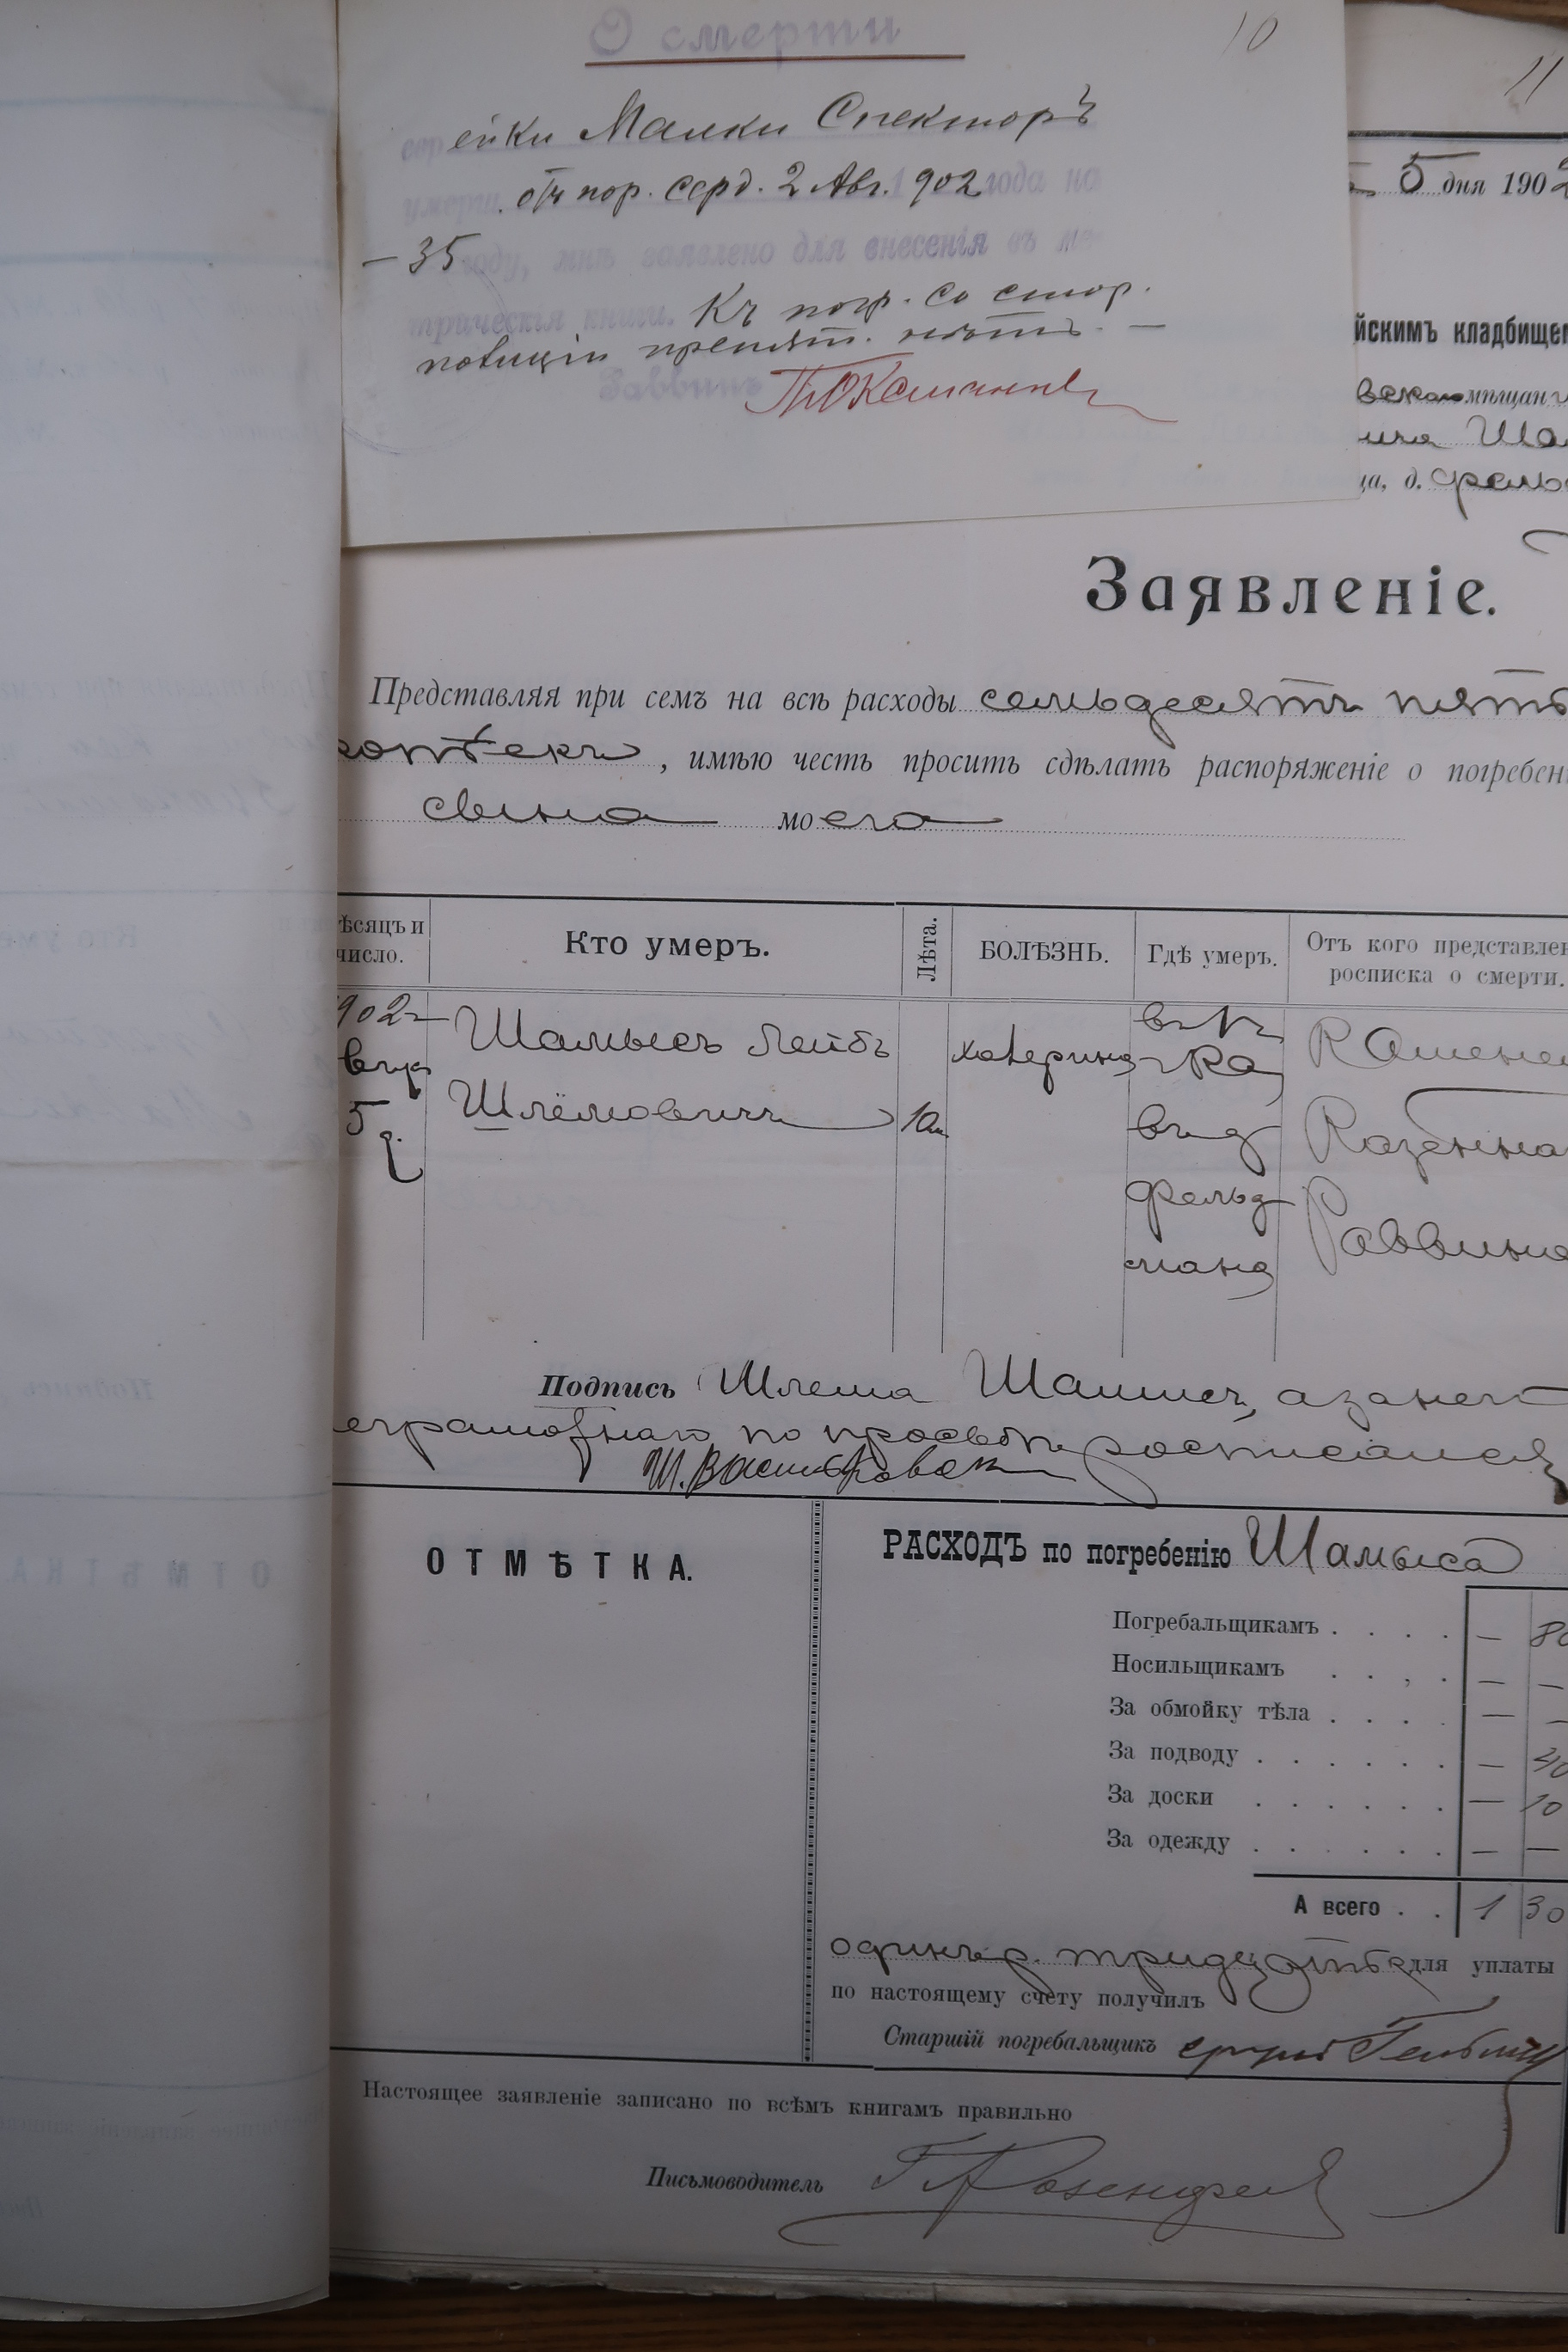 О смерти
10
11
ейки Малки Спекторъ
умерш. отъ пор. серд. 2 Авг. 1902 года на
– 35 году, мнѣ заявлено для внесенія въ ме
трическія книги. Къ погр. со стор.
полиціи препят. нѣтъ. –
Раввинъ
5 дня 1902
йскимъ кладбищем
мѣщан
Ша
ца, д. Фельд
Заявленіе.
Представляя при семъ на всѣ расходы семьдесятъ пять
копѣекъ, имѣю честь просить сдѣлать распоряженіе о погребені
сына моего
ѣсяцъ и число.
Кто умеръ.
Лѣта.
БОЛѢЗНЬ.
Гдѣ умеръ.
Отъ кого представлен
росписка о смерти.
902 г
Шамысъ Лейбъ
Шлёмовичъ
5 д.
10 м.
въ д
Фельд
мана
Казенна
Раввина
Подпись Шлема Шамисъ, а за него
еграмотнаго по просьбѣ росписался
ОТМѢТКА.
РАСХОДЪ по погребенію Шамыса
Погребальщикамъ . . . . — 80
Носильщикамъ . . . . — —
За обмойку тѣла . . . . — —
За подводу . . . . . . — 40
За доски . . . . . . — 10
За одежду . . . . . . — —
А всего . . 1 30
одинъ р. тридцать к для уплаты
по настоящему счету получилъ
Старшій погребальщикъ
Настоящее заявленіе записано по всѣмъ книгамъ правильно
Письмоводитель